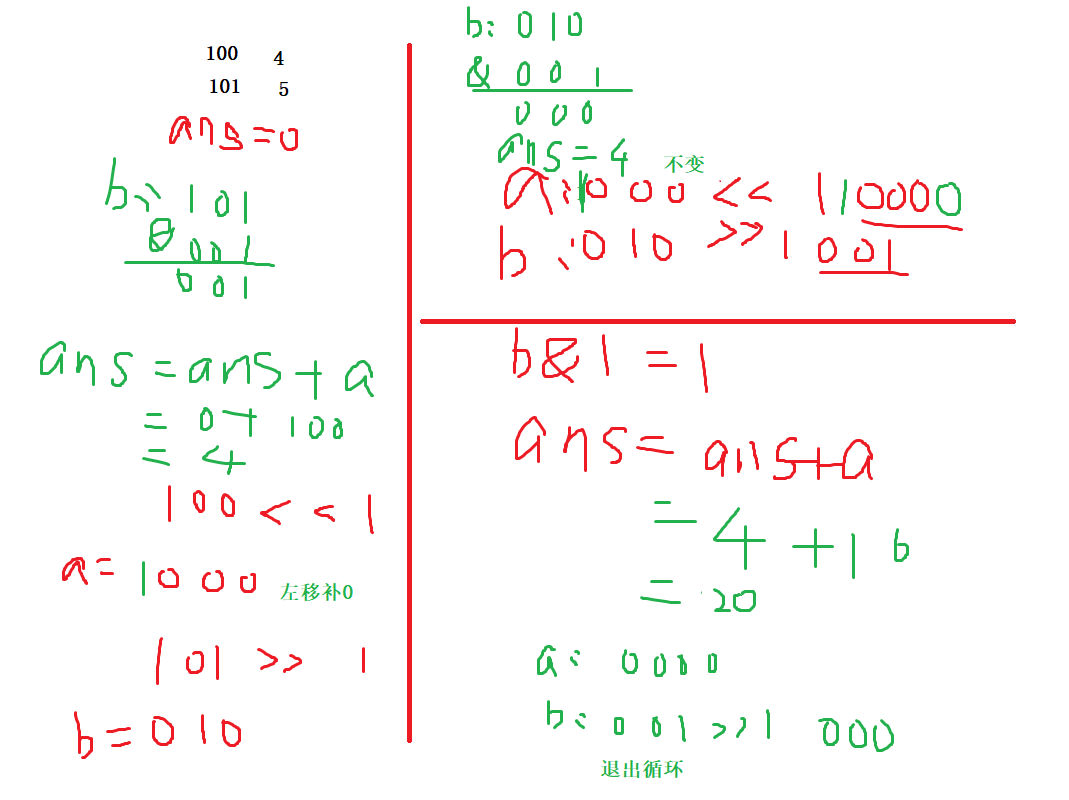 100 4
101 5
ans=0
b: 101
& 001
001
ans = ans + a
= 0+ 100
= 4
100 << 1
a= 1000 左移补0
101 >> 1
b= 010
b: 010
& 001
000
ans = 4 不变
a: 1000 << 1 10000
b: 010 >> 1 001
b & 1 = 1
ans = ans+a
= 4 + 16
= 20
a: 0000
b: 001 >> 1 000
退出循环